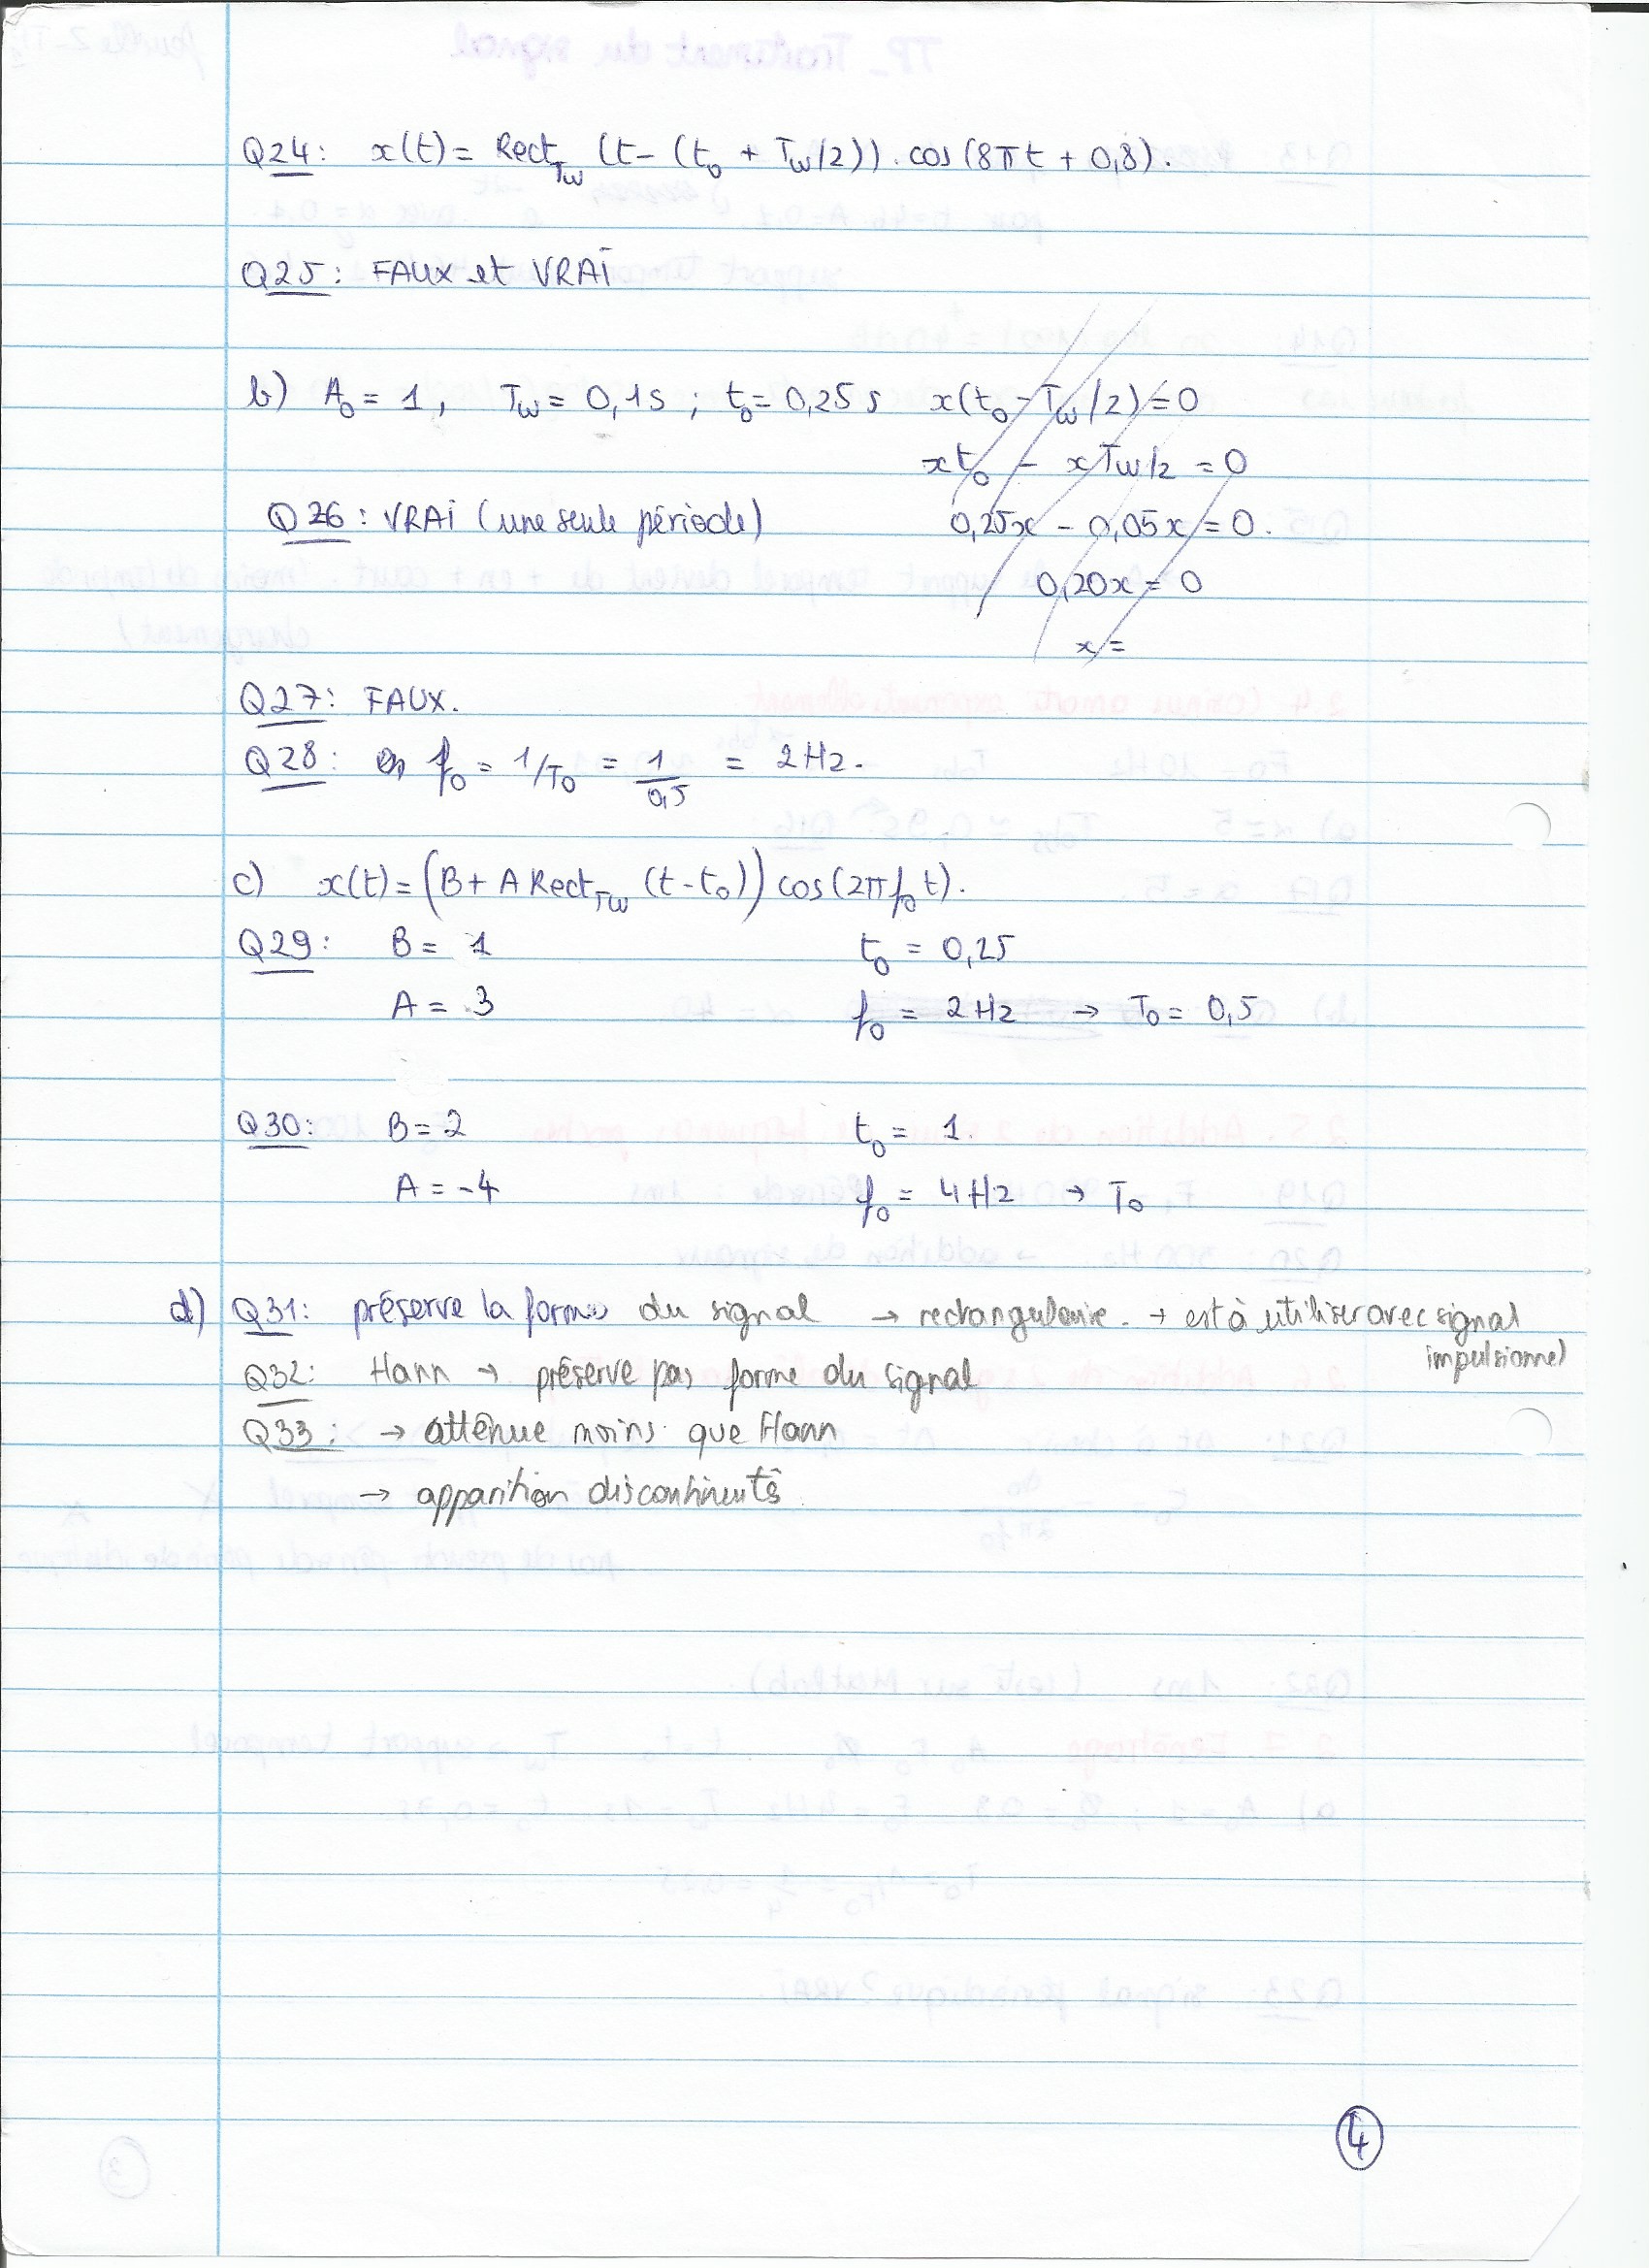 Q24: x(t) = Rect_Tw (t - (t₀ + Tw/2)). cos(8πt + 0,8).
Q25: FAUX et VRAI
b) A₀ = 1, Tw = 0,1s ; t₀ = 0,25 s x(t₀ - Tw/2) = 0
xt₀ - xTw/2 = 0
Q26: VRAI (une seule période) 0,25x - 0,05x = 0.
0,20x = 0
x =
Q27: FAUX.
Q28: f₀ = 1/T₀ = 1/0,5 = 2Hz.
c) x(t) = (B + A Rect_Tw (t-t₀)) cos(2πf₀t).
Q29: B = 1 t₀ = 0,25
A = 3 f₀ = 2Hz → T₀ = 0,5
Q30: B = 2 t₀ = 1.
A = -4 f₀ = 4Hz → T₀
d) Q31: préserve la forme du signal → rectangulaire. → est à utiliser avec signal
impulsionnel
Q32: Hann → préserve pas forme du signal
Q33: → atténue moins que Hann
→ apparition discontinuités
4